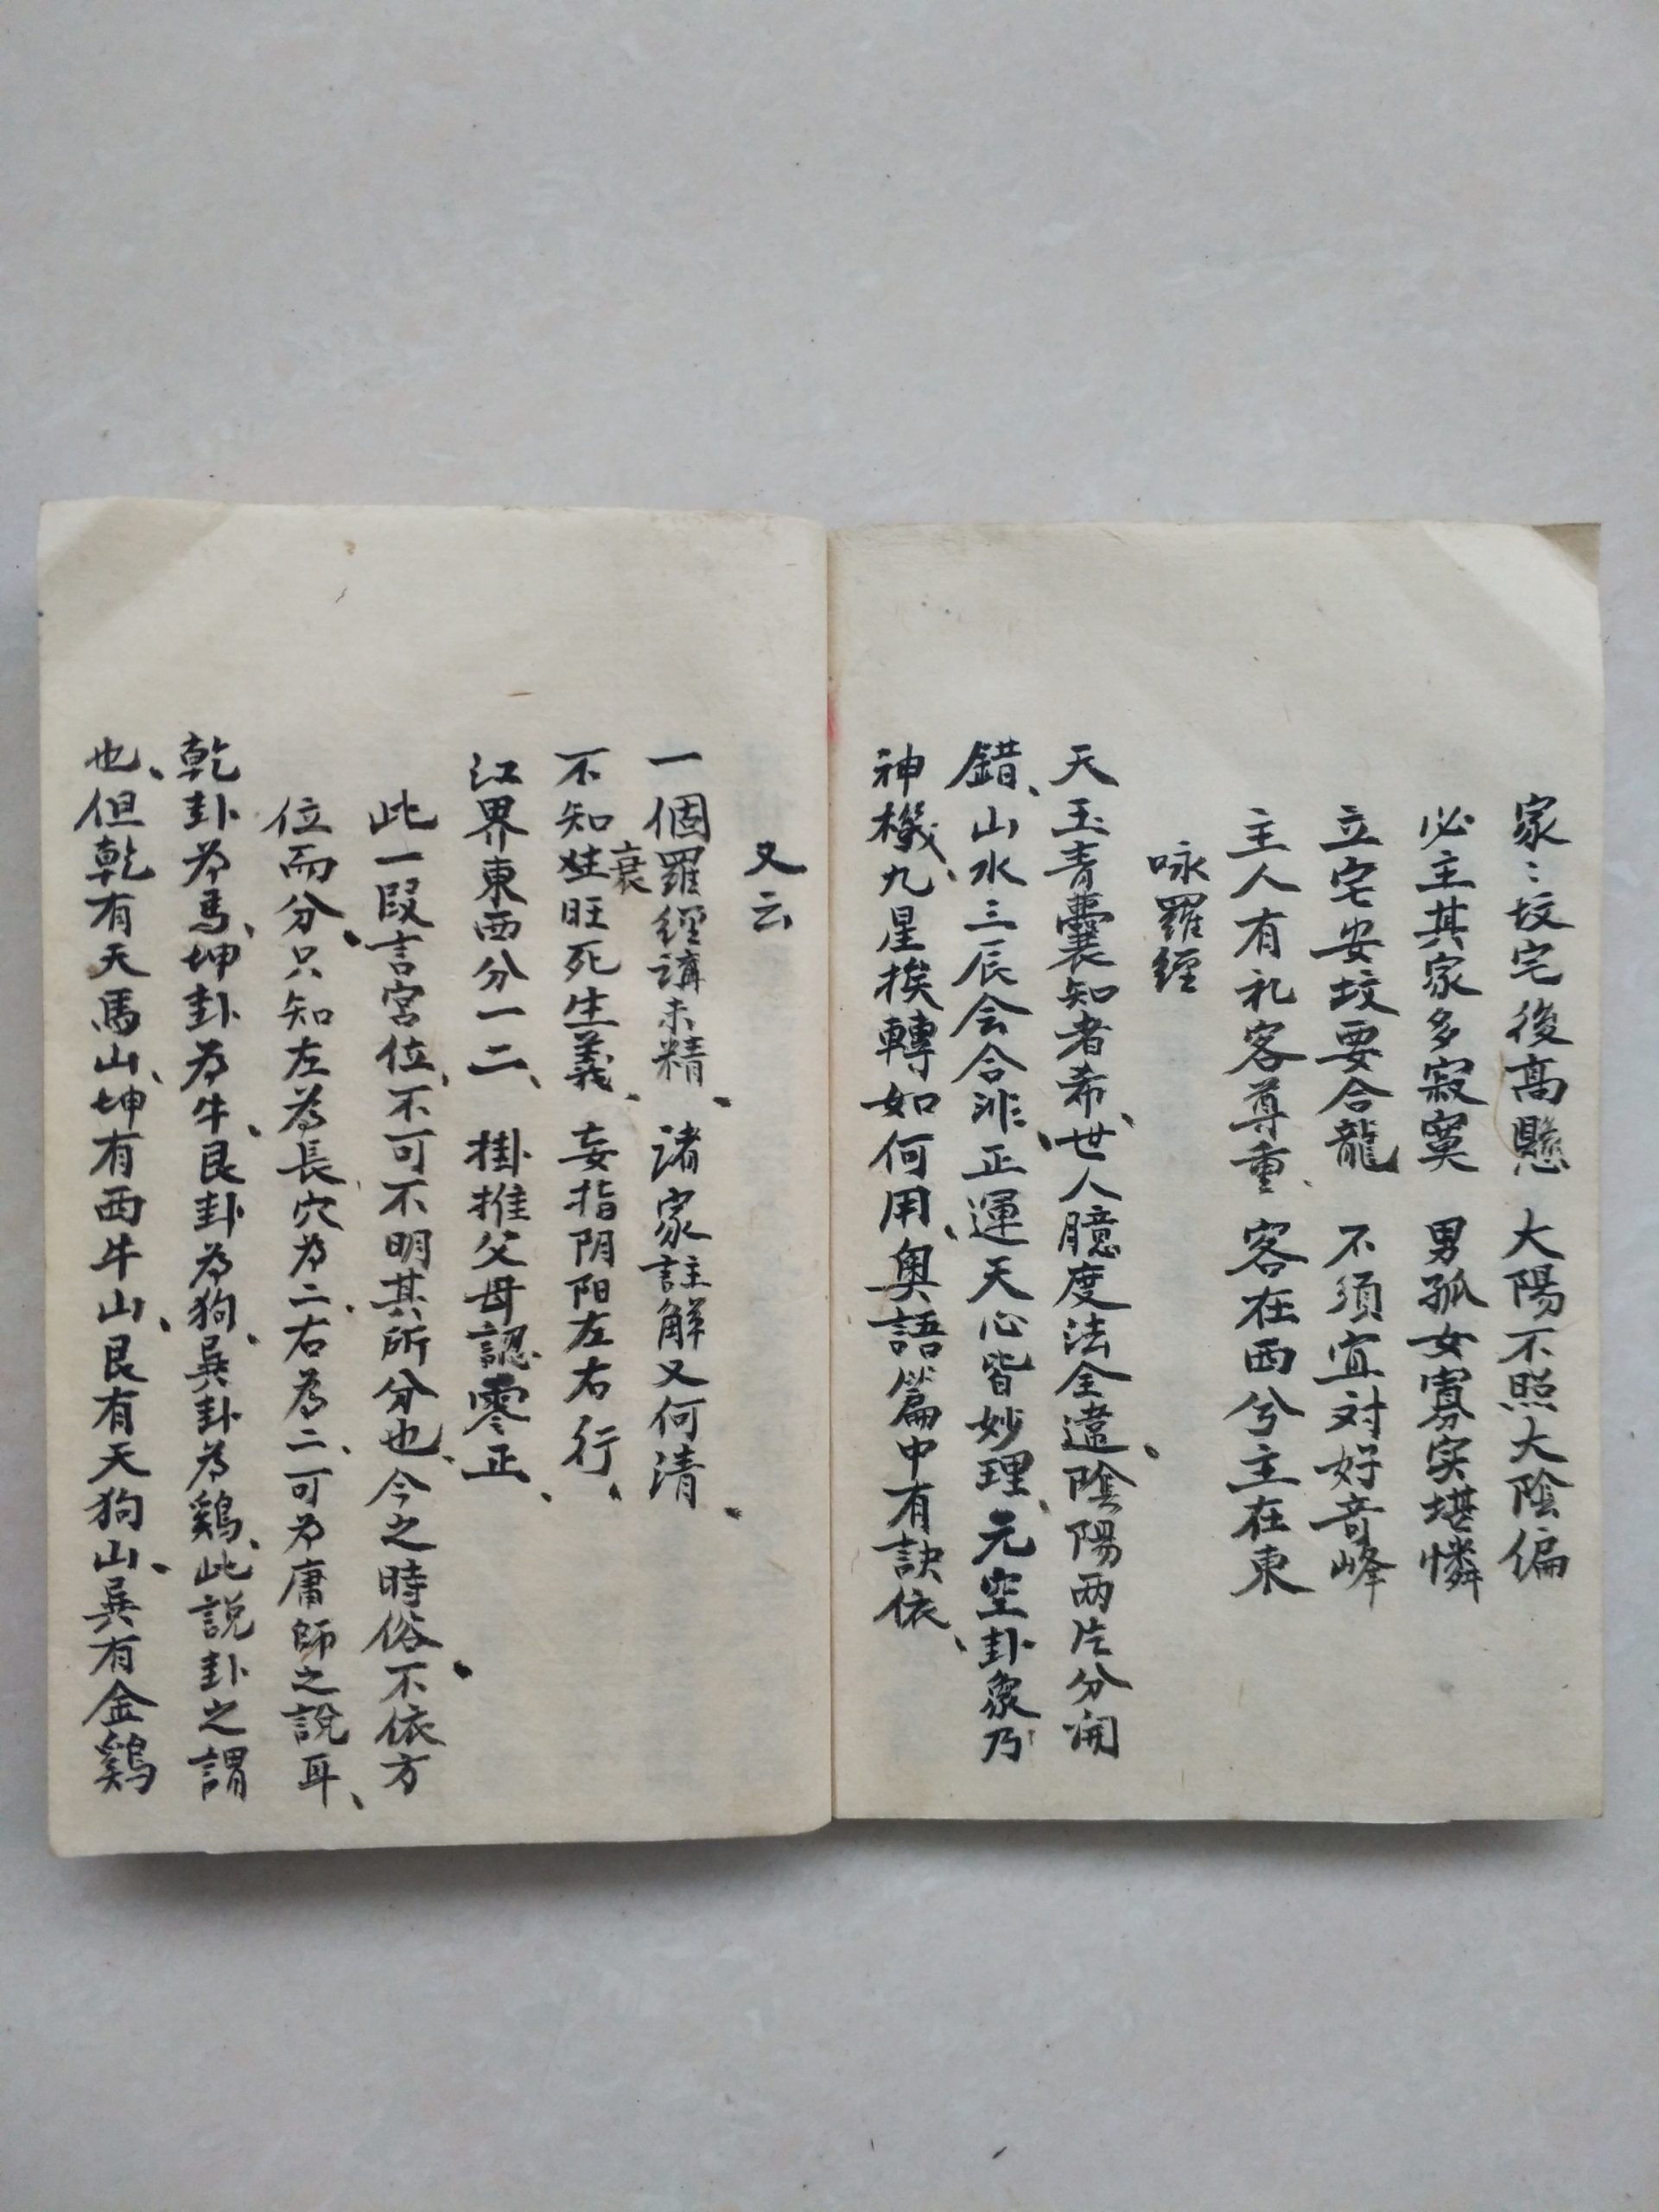 家〻坟宅後高懸　大陽不照大陰偏
必主其家多寂寞　男孤女寡实堪憐
立宅安坟要合龍　不須宜对好奇峰
主人有礼客尊重、客在西兮主在東
咏羅經
天玉青囊知者希、世人臆度法全違、陰陽兩片分開
錯、山水三辰会合非、正運天心皆妙理、元空卦象乃
神機、九星挨轉如何用、奧語篇中有訣依、
又云
一個羅經講未精、諸家註解又何清、
不知衰旺死生義、妄指阴阳左右行、
江界東西分一二、掛推父母認零正、
此一段言宮位、不可不明其所分也、今之時俗、不依方
位而分、只知左為長穴為二、右為二、可為庸師之說耳、
乾卦为馬、坤卦为牛、艮卦為狗、巽卦為鷄、此說卦之謂
也、但乾有天馬山、坤有西牛山、艮有天狗山、巽有金鷄